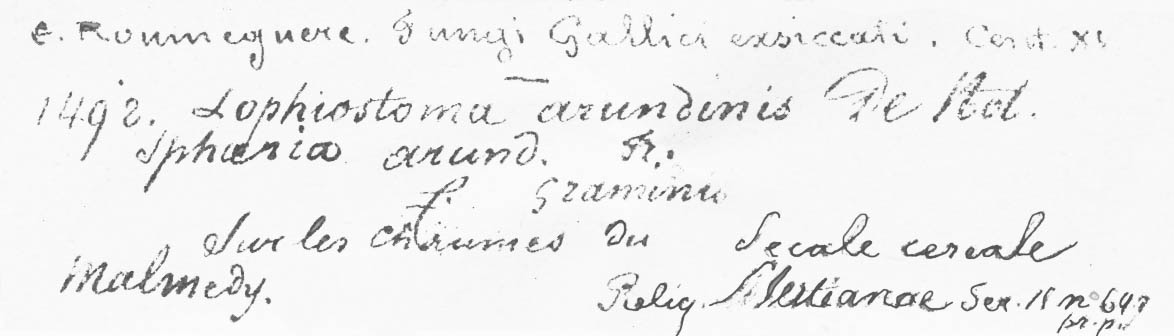 C. Roumeguere. Fungi Gallici exsiccati. Cent. XV
1492. Lophiostoma arundinis De Not.
Sphæria arund. Fr.
f. Graminis
Sur les chaumes du Secale cereale
Malmedy. Reliq. Libertianae Ser. 15 no
pr. p.